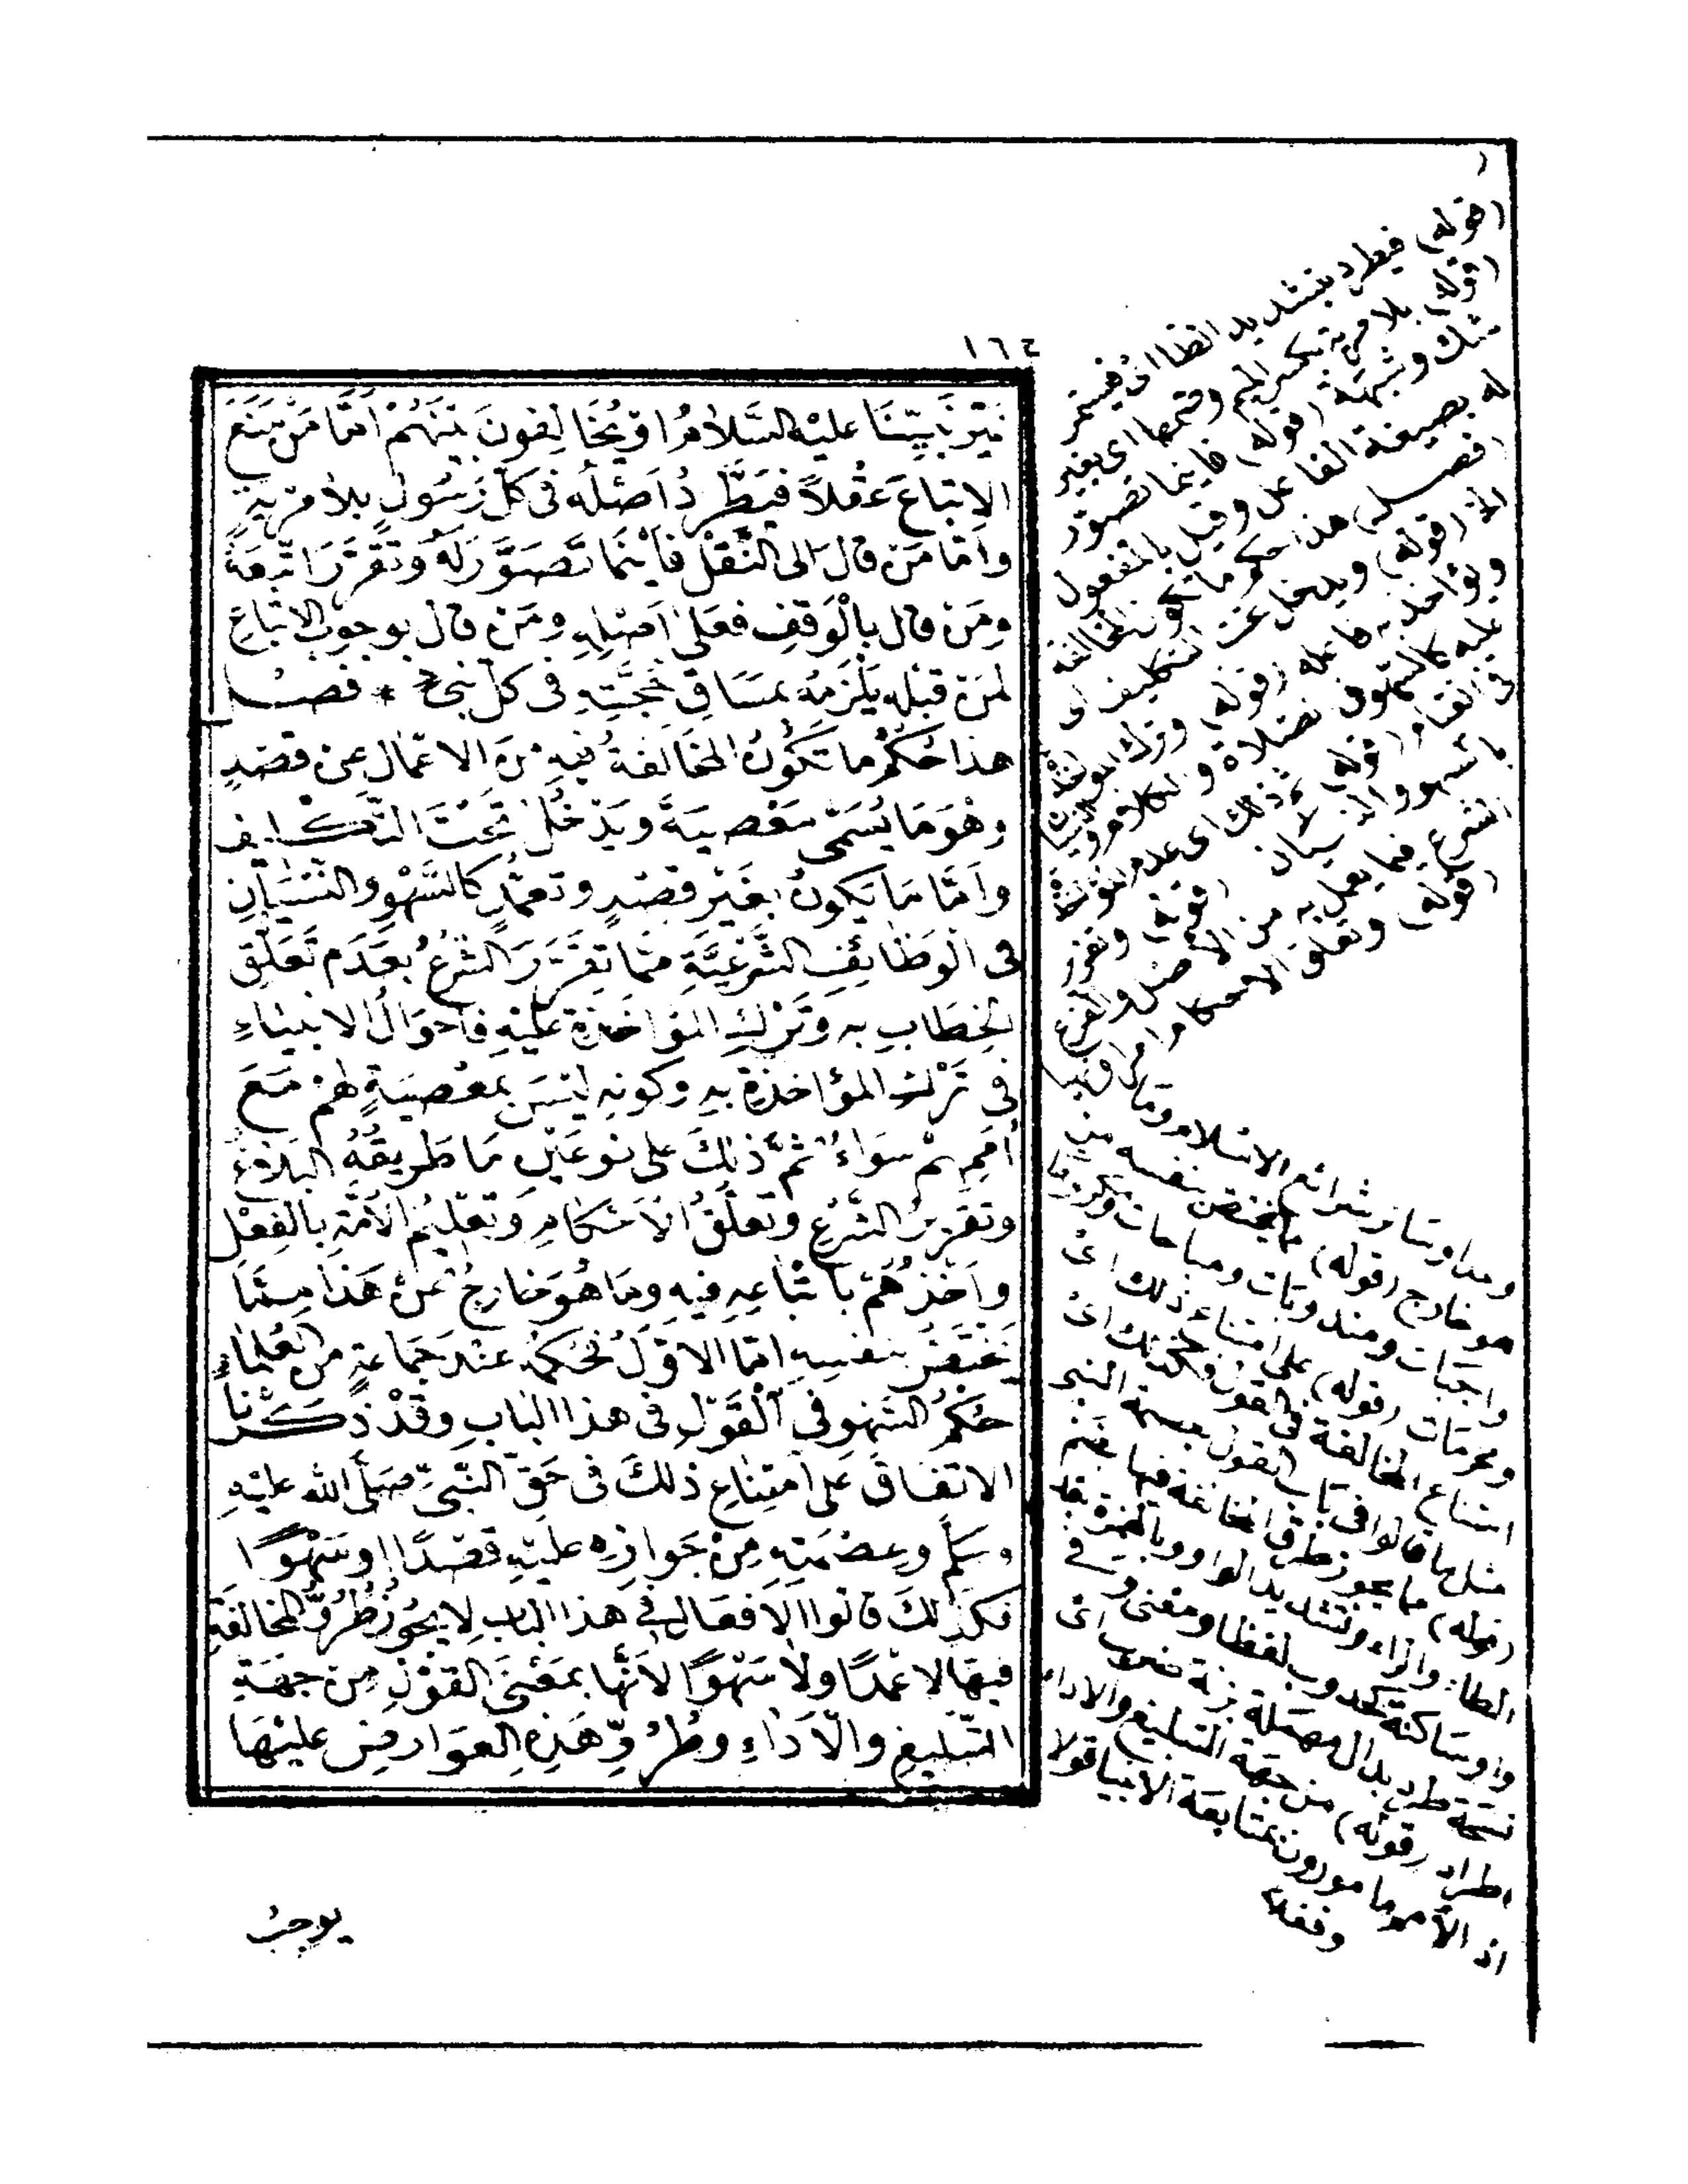 ١٦٤
غير نبينا عليه السلام او يخالفون بينهم اما من منع
الاتباع عقلا فيطرد اصله في كل رسول بلا مرية
واما من قال الى النقل فاينما تصور له وتقرر اتبعه
ومن قال بالوقف فعلى اصله ومن قال بوجوب الاتباع
لمن قبله يلزمه بمساق حجته في كل نبي * فصل
هذا حكم ما تكون المخالفة فيه من الاعمال عن قصد
وهو ما يسمى معصية ويدخل تحت التكليف
واما ما يكون بغير قصد وتعمد كالسهو والنسيان
في الوظائف الشرعية مما تقرر الشرع بعدم تعلق
الخطاب به وترك المؤاخذة عليه فاحوال الانبياء
في ترك المؤاخذة به وكونه ليس بمعصية لهم مع
اممهم سواء ثم ذلك على نوعين ما طريقه البلاغ
وتقرير الشرع وتعلق الاحكام وتعليم الامة بالفعل
واخذهم باتباعه فيه وما هو خارج عن هذا مما
يختص بنفسه اما الاول فحكمه عند جماعة من العلماء
حكم السهو في القول في هذا الباب وقد ذكرنا
الاتفاق على امتناع ذلك في حق النبي صلى الله عليه
وسلم وعصمته من جوازه عليه قصدا او سهوا
فكذلك قالوا الافعال في هذا الباب لا يجوز طرو المخالفة
فيها لا عمدا ولا سهوا لانها بمعنى القول من جهة
التبليغ والاداء وطرو هذه العوارض عليها
يوجب
(قوله) فيطرد بتشديد الطاء اى فيستمر
(قوله) بلا مرية بكسر الميم وضمها اى بغير
شك وشبهة (قوله) فاينما تصور
له بصيغة الفاعل وقيل بالمفعول
(فصل) هذا حكم ما تكون المخالفة
الخ (قوله) ويدخل تحت التكليف اى
ويؤاخذ به فاعله (قوله) وترك المؤاخذة
(قوله) ثم ذلك اى عدم المؤاخذة
بالسهو والنسيان (قوله) وتقرير
الشرع فيما يعمل به من الاصل والفرع
(قوله) وتعلق الاحكام
وسائر شرائع الاسلام وما
هو خارج (قوله) ما يختص بنفسه من
واجبات ومندوبات ومباحات
ومحرمات (قوله) على امتناع ذلك اى
امتناع المخالفة في القول فكذلك اى
مثل ما قالوا في باب القول بعصمة النبي
(قوله) ما يجوز طرو المخالفة فيها بضم
الطاء والراء وتشديد الواو وبالهمزة
واو ساكنة لفظا ومعنى وفي
نسخة طرد بدال مهملة بزنة ضرب اى
اطراد (قوله) من جهة التبليغ والاداء
اذ الامة مامورون بمتابعة الانبيا قولا
وفعلا